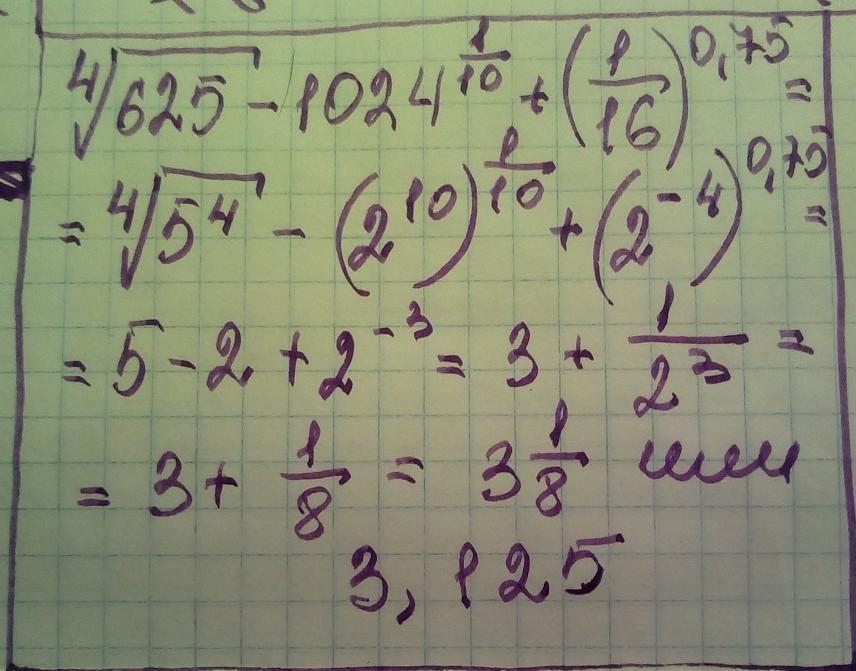 ⁴√625 - 1024^(1/10) + (1/16)^0,75 =
= ⁴√5⁴ - (2^10)^(1/10) + (2^-4)^0,75 =
= 5 - 2 + 2^-3 = 3 + 1/2^3 =
= 3 + 1/8 = 3 1/8 или
3,125